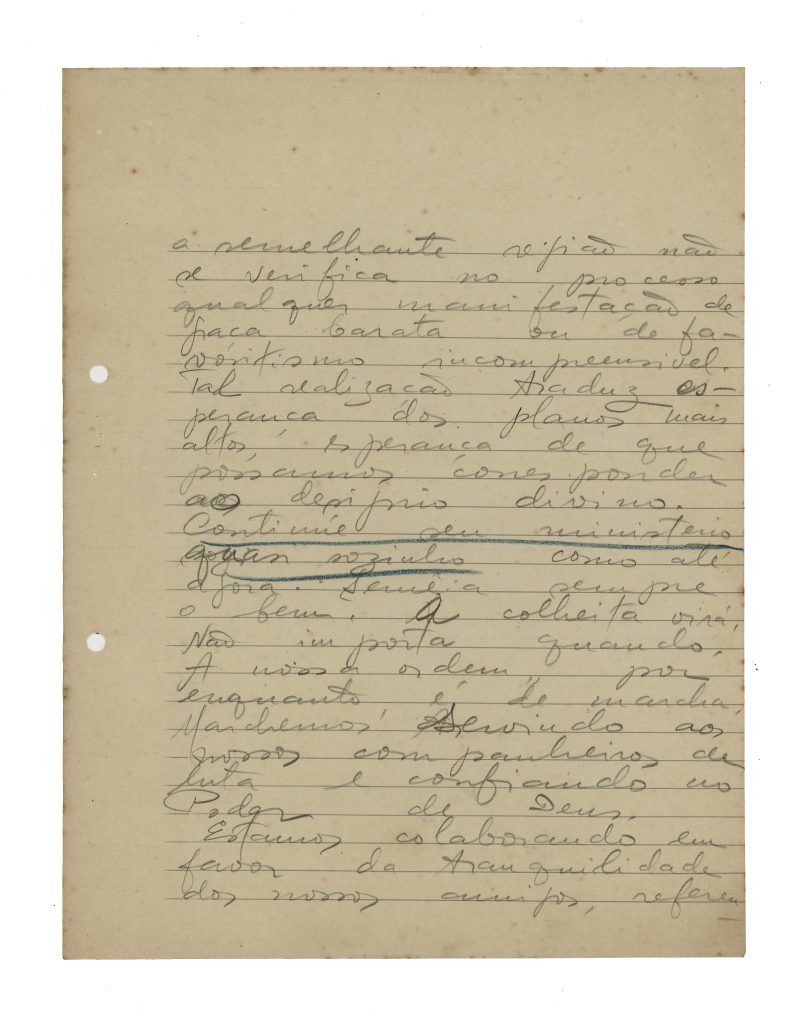 a semelhante região não
se verifica no processo
qualquer manifestação de
graça barata ou de fa-
voritismo incompreensivel.
Tal realização traduz es-
perança dos planos mais
altos, esperança de que
possamos corresponder
ao designio divino.
Continúe seu ministerio
quasi sozinho como até
agora. Semeia sempre
o bem. A colheita virá.
Não importa quando.
A nossa ordem, por
enquanto, é de marcha.
Marchemos servindo aos
nossos companheiros de
luta e confiando no
Poder de Deus.
Estamos colaborando em
favor da tranquilidade
dos nossos amigos, referen